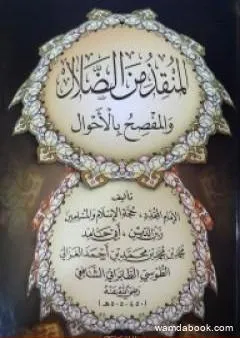 المنقذ من الضلال
والمفصح بالأحوال
تأليف
الإمام المجدد، حجة الإسلام والمسلمين
زين الدين، أبي حامد
محمد بن محمد بن محمد بن أحمد الغزالي
الطوسي الطابراني الشافعي
رضي الله عنه
(٤٥٠-٥٠٥هـ)
wamdabook.com